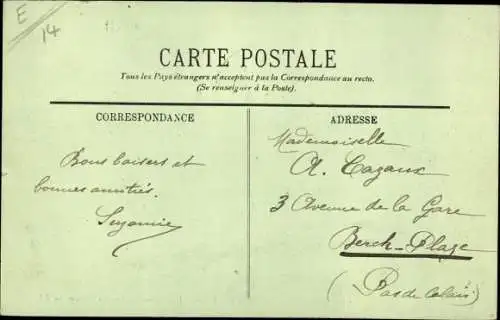 E
14
CARTE POSTALE
Tous les Pays étrangers n'acceptent pas la Correspondance au recto.
(Se renseigner à la Poste).
CORRESPONDANCE
Bons baisers et
bonnes amitiés.
Suzanne
ADRESSE
Mademoiselle
A. Cazaux
3 Avenue de la Gare
Berck-Plage
(Pas de Calais)